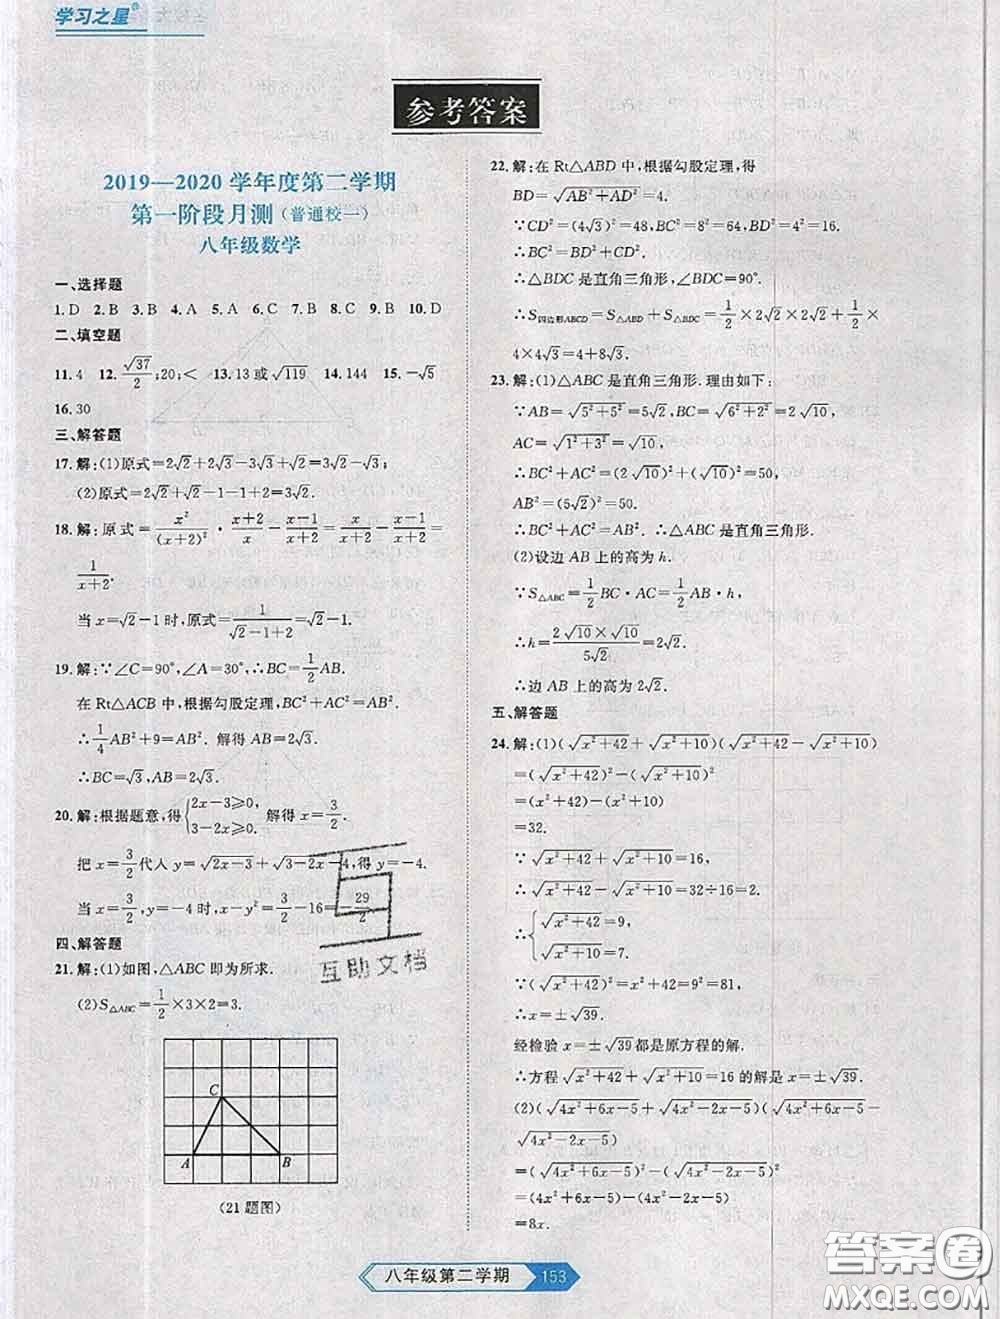 学习之星®
参考答案
2019—2020 学年度第二学期
第一阶段月测(普通校一)
八年级数学
一、选择题
1. D 2. B 3. B 4. A 5. A 6. C 7. B 8. C 9. B 10. D
二、填空题
11. 4 12. √37/2;20;< 13. 13 或√119 14. 144 15. -√5
16. 30
三、解答题
17. 解:(1)原式=2√2+2√3-3√3+√3=2√2-√3;
(2)原式=2√2+√2-1-1+2=3√2.
18. 解:原式=x²/(x+2)²·(x+2)/x-(x-1)/(x+2)=x/(x+2)-(x-1)/(x+2)=
1/(x+2).
当 x=√2-1时,原式=1/(√2-1+2)=√2-1.
19. 解:∵∠C=90°,∠A=30°,∴BC=1/2AB.
在 Rt△ACB 中,根据勾股定理,BC²+AC²=AB².
∴1/4AB²+9=AB². 解得 AB=2√3.
∴BC=√3,AB=2√3.
20. 解:根据题意,得{2x-3≥0, 3-2x≥0. 解得 x=3/2.
把 x=3/2代入 y=√(2x-3)+√(3-2x)-4,得 y=-4.
当 x=3/2,y=-4时,x-y²=3/2-16=-29/2.
四、解答题
21. 解:(1)如图,△ABC 即为所求.
(2)S△ABC=1/2×3×2=3.
C
A
B
(21 题图)
22. 解:在 Rt△ABD 中,根据勾股定理,得
BD=√(AB²+AD²)=4.
∵CD²=(4√3)²=48,BC²=8²=64,BD²=4²=16.
∴BC²=BD²+CD².
∴△BDC 是直角三角形,∠BDC=90°.
∴S四边形ABCD=S△ABD+S△BDC=1/2×2√2×2√2+1/2×
4×4√3=4+8√3.
23. 解:(1)△ABC 是直角三角形. 理由如下:
∵AB=√(5²+5²)=5√2,BC=√(6²+2²)=2√10,
AC=√(1²+3²)=√10,
∴BC²+AC²=(2√10)²+(√10)²=50,
AB²=(5√2)²=50.
∴BC²+AC²=AB². ∴△ABC 是直角三角形.
(2)设边 AB 上的高为 h.
∵S△ABC=1/2BC·AC=1/2AB·h,
∴h=(2√10×√10)/(5√2)=2√2.
∴边 AB 上的高为 2√2.
五、解答题
24. 解:(1)(√(x²+42)+√(x²+10))(√(x²+42)-√(x²+10))
=(√(x²+42))²-(√(x²+10))²
=(x²+42)-(x²+10)
=32.
∵√(x²+42)+√(x²+10)=16,
∴√(x²+42)-√(x²+10)=32÷16=2.
∴{√(x²+42)=9, √(x²+10)=7.
∵(√(x²+42))²=x²+42=9²=81,
∴x=±√39.
经检验 x=±√39都是原方程的解.
∴方程√(x²+42)+√(x²+10)=16 的解是 x=±√39.
(2)(√(4x²+6x-5)+√(4x²-2x-5))(√(4x²+6x-5)-
√(4x²-2x-5))
=(√(4x²+6x-5))²-(√(4x²-2x-5))²
=(4x²+6x-5)-(4x²-2x-5)
=8x.
互助文档
八年级第二学期 153
答案圈
MXQE.COM